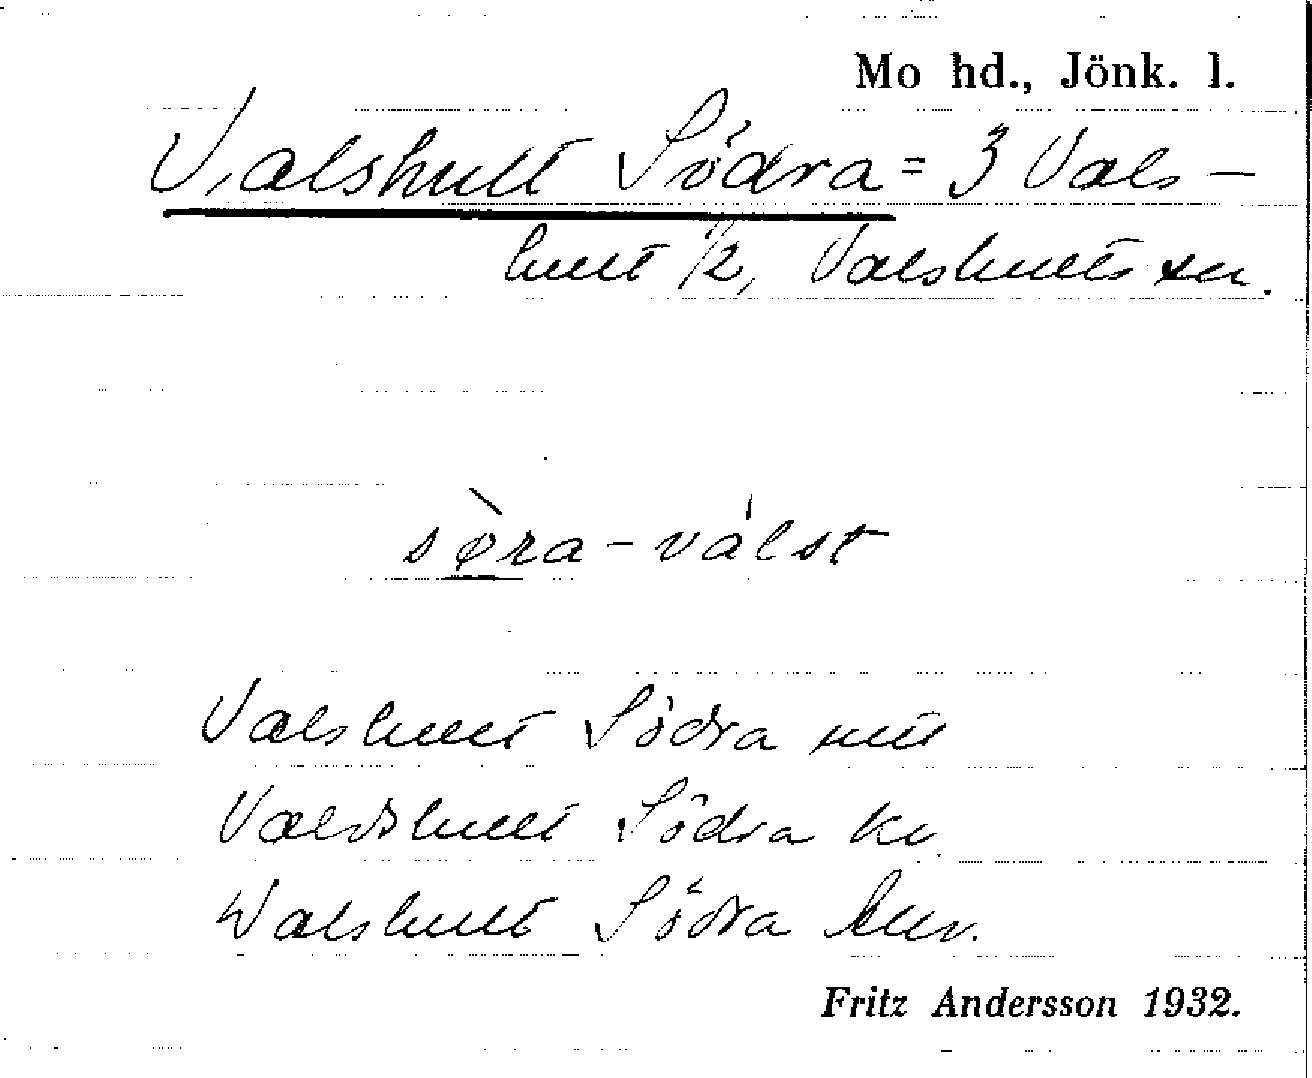 Mo hd., Jönk. l.
Valshult Södra = 3 Vals-
hult 1/2, Valshults sn.
sø̀ra-válst
Valshult Södra
Valdshult Södra kv.
Walshult Södra
Fritz Andersson 1932.